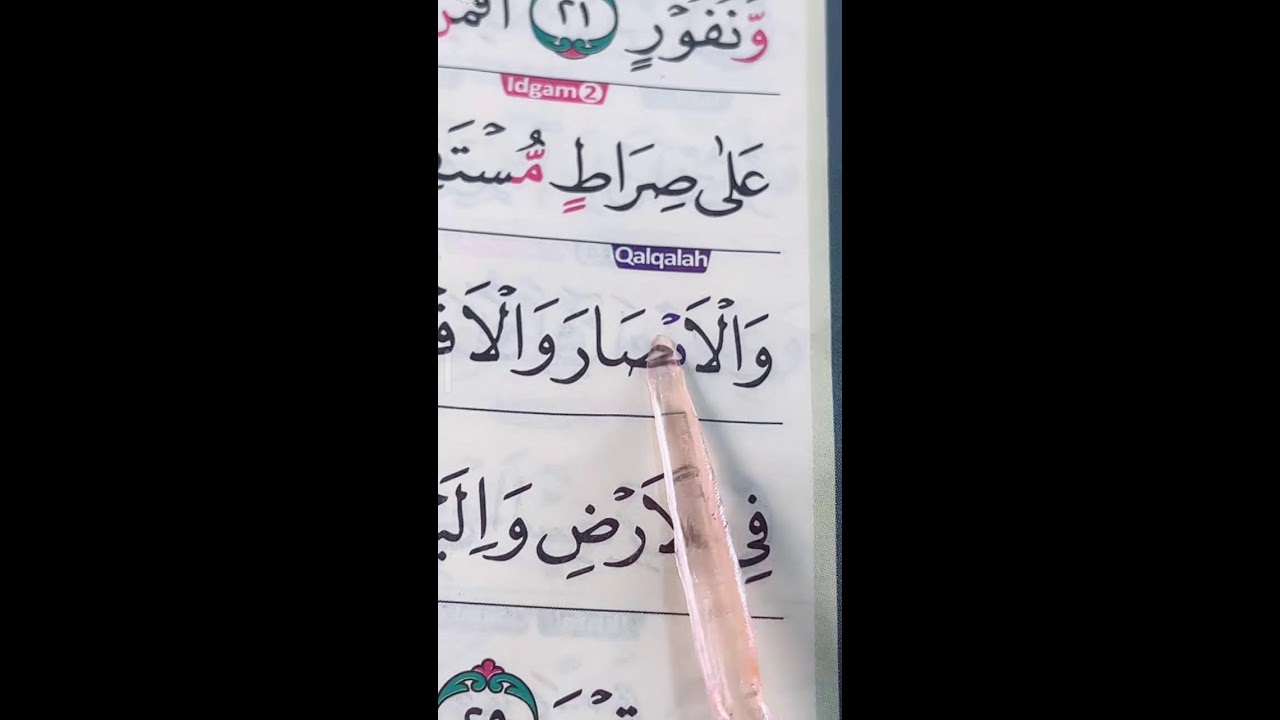 وَّنُفُوْرٍ ٢١
Idgam 2
عَلٰى صِرَاطٍ مُّسْتَقِ
Qalqalah
وَالْاَبْصَارَ وَالْاَفْ
فِى الْاَرْضِ وَاِلَيْ
٢٥